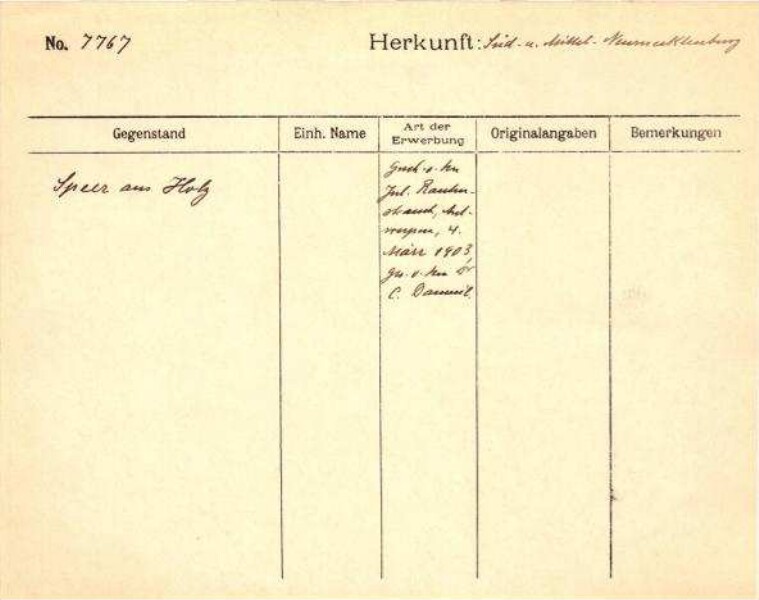 No. 7767 Herkunft: Süd- u. Mittel- Neumecklenburg
Gegenstand Einh. Name Art der Erwerbung Originalangaben Bemerkungen
Speer aus Holz
Gesch. v. Hn
Jul. Rauten-
strauch, Ant-
werpen, 4.
März 1903,
ges. v. Hn Dr
C. Dammil.